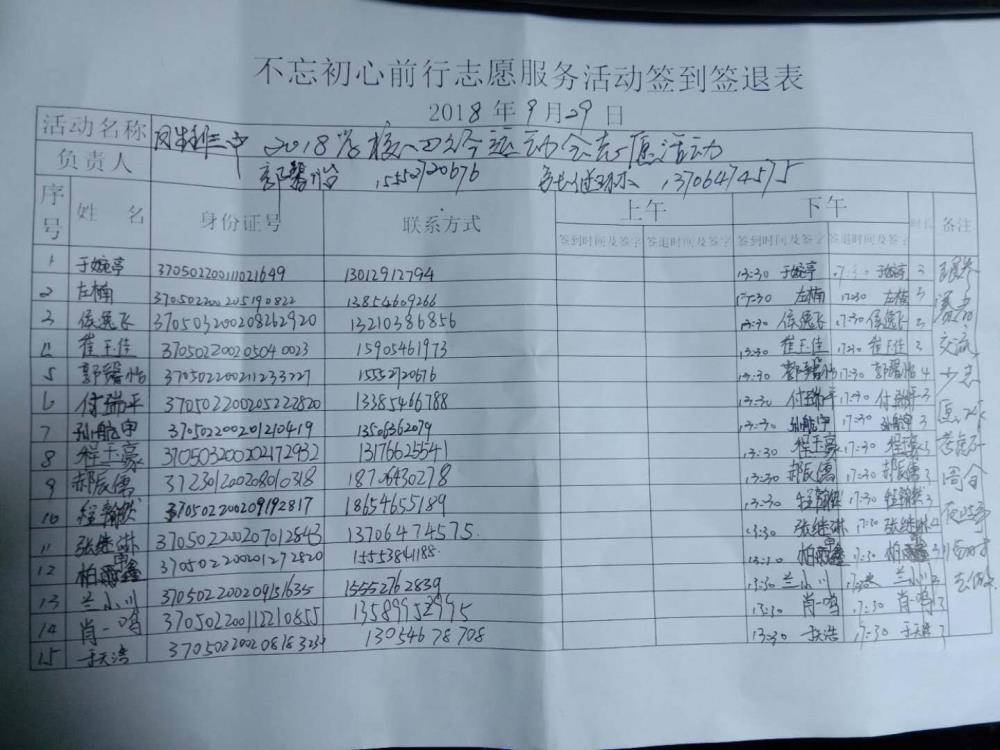 不忘初心前行志愿服务活动签到签退表
2018年9月29日
活动名称 2018学校 运动会志愿活动
负责人 郭馨怡 15552720676 13706474575
序号 姓名 身份证号 联系方式 上午 下午 时长 备注
签到时间及签字 签退时间及签字 签到时间及签字 签退时间及签字
1 于婉亭 370502200111021649 13012912794 13:30 于婉亭 17:30 于婉亭 3
2 左楠 370502200205190822 13854609266 17:30 左楠 17:30 左楠 3
3 侯逸飞 370503200208262920 13210386856 13:30 侯逸飞 17:30 侯逸飞 3
4 崔玉佳 370502200205040023 15905461973 13:30 崔玉佳 17:30 崔玉佳 3 交流
5 郭馨怡 370502200211233227 15552720676 13:30 郭馨怡 17:30 郭馨怡 4
6 付瑞平 370502200205222820 13385466788 13:30 付瑞平 17:30 付瑞平 3
7 孙航申 370502200201210419 13506362079 13:30 孙航申 17:30 孙航申 3
8 程玉豪 370503200202172932 13176625541 13:30 程玉豪 17:30 程玉豪 3 考虑不
9 郝辰儒 372301200208010318 18706430278 13:30 郝辰儒 17:30 郝辰儒 3 周全
10 程翰然 370502200209192817 18654655189 13:30 程翰然 17:30 程翰然 3
11 张继琳 370502200207012843 13706474575 13:30 张继琳 17:30 张继琳 4
12 柏 鑫 370502200201272820 15553841188 13:30 柏 鑫 17:30 柏 鑫 3
13 兰小川 370502200209151635 15552762839 13:30 兰小川 兰小川
14 肖一鸣 370502200112210855 13589952995 13:30 肖一鸣 17:30 肖一鸣 3
15 于天浩 370502200208183234 13054678708 13:30 于天浩 17:30 于天浩 3